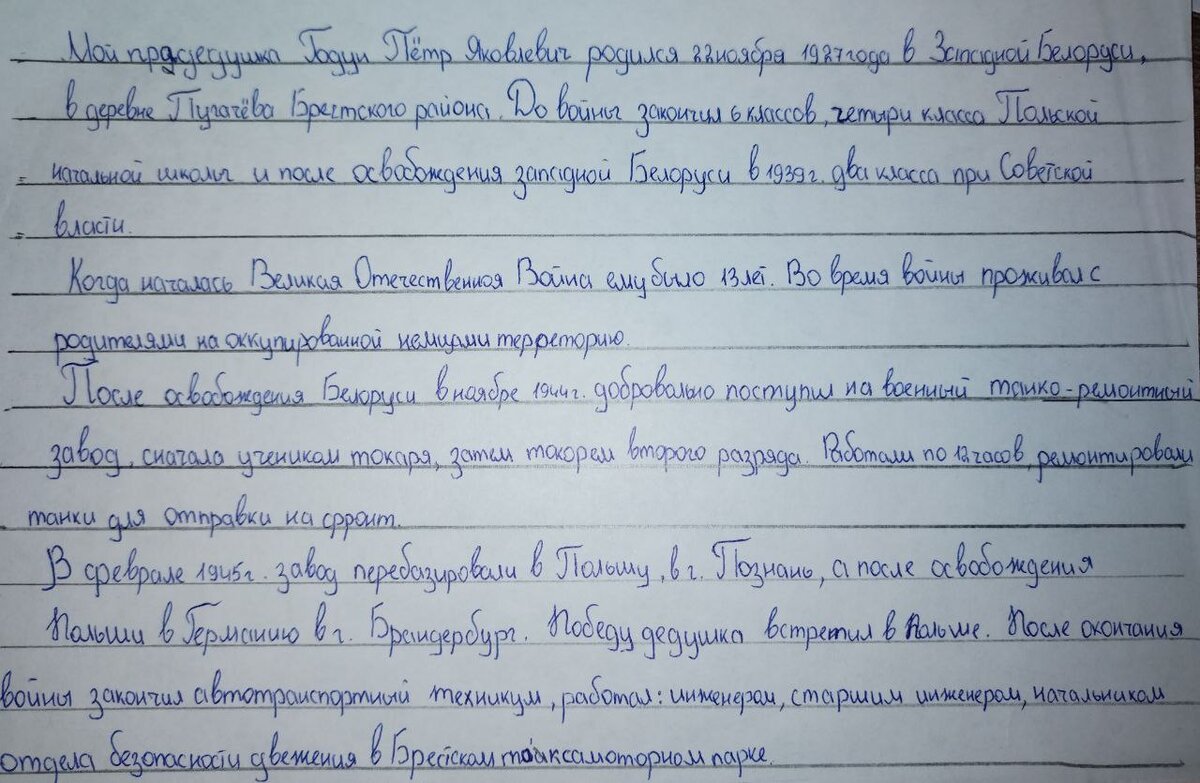 Мой прадедушка Годун Пётр Яковлевич родился 22 ноября 1927 года в Западной Белоруси,
в деревне Пугачёва Брестского района. До войны закончил 6 классов, четыри класса Польской
начальной школы и после освабождения западной Белоруси в 1939 г. два класса при Советской
власти.
Когда началась Великая Отечественная Война ему было 13 лет. Во время войны проживал с
родителями на оккупированной немцами терреторию.
После освобождения Белоруси в ноябре 1944 г. добровально поступил на военный танко-ремонтный
завод, сначала учеником токаря, затем токорем второго разряда. Работали по 12 часов, ремонтировали
танки для отправки на фронт.
В феврале 1945 г. завод перебазировали в Польшу, в г. Познань, а после освобождения
Польши в Германию в г. Брандербург. Победу дедушка встретил в Польше. После окончания
войны закончил автотранспортный техникум, работал: инженером, старшим инженером, начальником
отдела безопасности движения в Брестском таксамоторном парке.